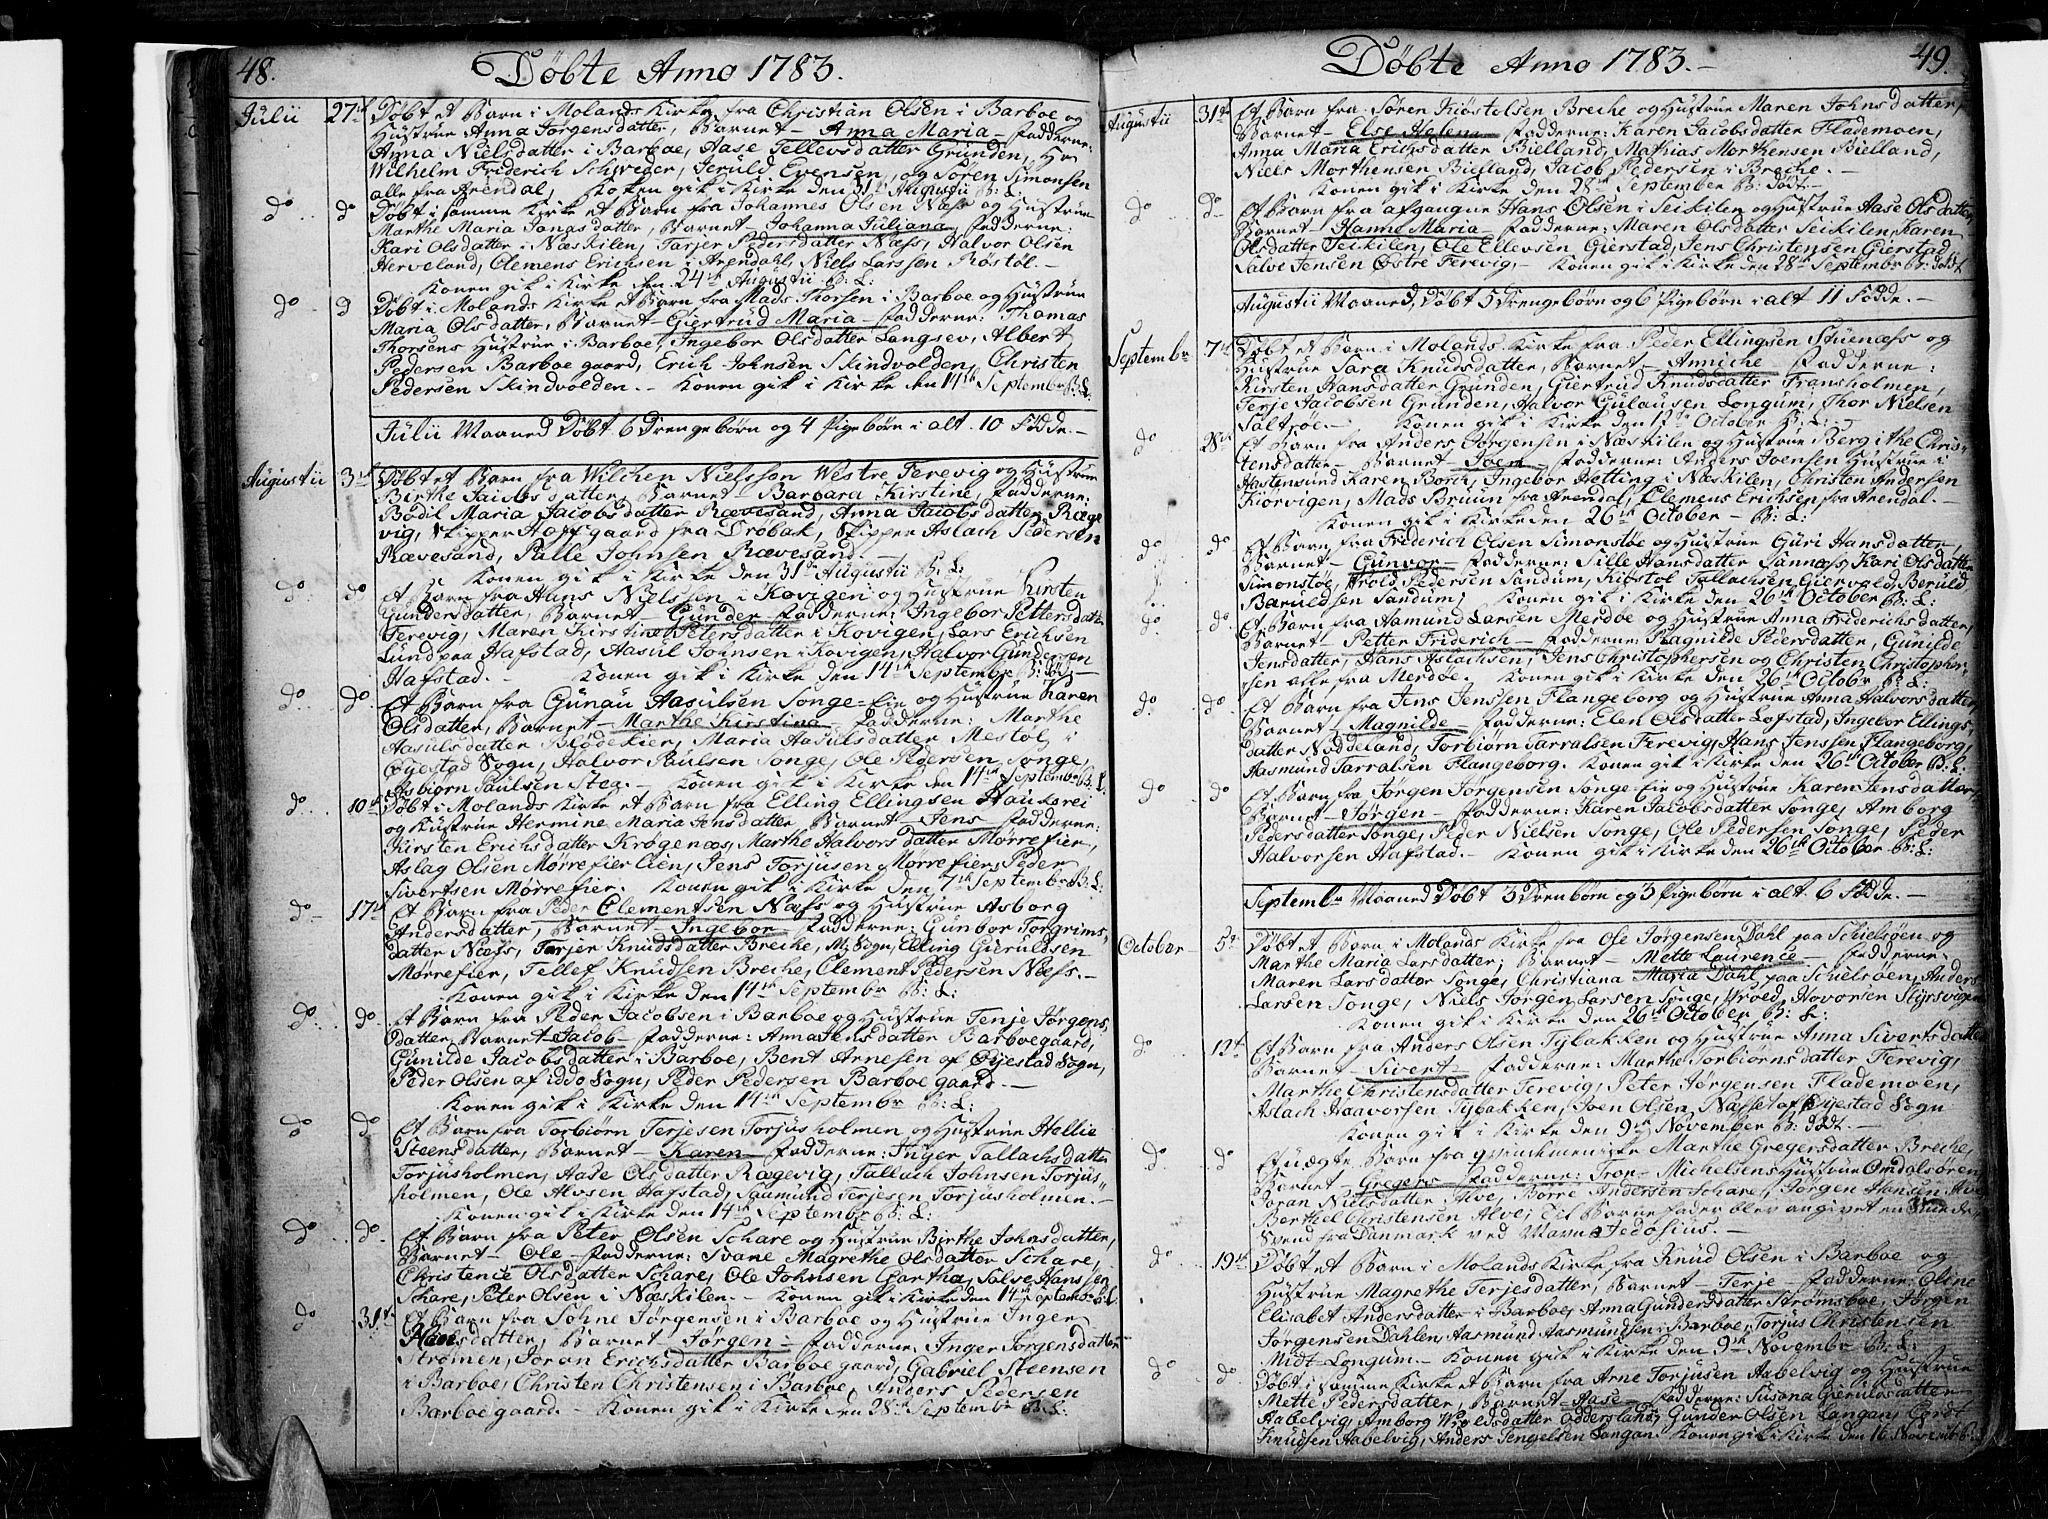 48.
Döbte Anno 1783.
Julii 27de Döbt et Barn i Molands Kirke fra Christian Olsen i Barboe og
Hustrue Anna Jörgensdatter, Barnet - Anna Maria - Fadderne:
Anna Nielsdatter i Barboe, Aase Tellevsdatter Grunden, Hr
Wilhelm Friderich Schweder, Jeruld Evensen, og Sören Simonsen
alle fra Arendal, Konen gik i Kirke den 31te Augustii B: L:
do do Döbt i samme Kirke et Barn fra Johannes Olsen Næss og Hustrue
Marthe Maria Jonasdatter, Barnet - Johanna Juliana - Fadderne:
Kari Olsdatter i Næskilen, Tarjer Pedersdatter Næss, Halvor Olsen
Herveland, Clemens Erichsen i Arendahl, Niels Larssen Röstöl. -
Konen gik i Kirke den 24de Augustii B: L:
do d Döbt i Molands Kirke et Barn fra Mads Thorsen i Barboe og Hustrue
Maria Olsdatter, Barnet - Giertrud Maria - Fadderne: Thomas
Thorsens Hustrue i Barboe, Ingebor Olsdatter Langsev, Albert
Pedersen Barboegaard, Erich Johnsen Skindvolden, Christen
Pedersen Skindvolden. - Konen gik i Kirke den 14de Septembr B: L:
Julii Maaned Döbt 6 Drengebörn og 4 Pigebörn i alt 10 Födde. -
Augustii 3die Döbt et Barn fra Wilchen Nielsson Westre Ferevig og Hustrue
Birthe Jacobsdatter, Barnet - Barbara Kirstine, Fadderne:
Bodil Maria Jacobsdatter Rævesand, Anna Jacobsdatter Ræge
vig, Skipper Hoffgaard fra Dröbak, Skipper Aslach Pedersen
Rævesand, Palle Johnsen Rævesand. -
Konen gik i Kirke den 31te Augustii B: L:
do do Et Barn fra Hans Nielssen i Kovigen og Hustrue Kirsten
Gundersdatter, Barnet - Gunder Fadderne: Ingebor Pettersdatter
Ferevig, Maren Kirstina Petersdatter i Kovigen, Lars Erichsen
Lund paa Hafstad, Aasul Johnsen i Kovigen, Halvor Gundersen
Hafstad. - Konen gik i Kirke den 14de Septembr B: Död
do do Et Barn fra Gunau Aasulsen Songe-Eie og Hustrue Karen
Olsdatter, Barnet - Marthe Kirstina - Fadderne: Marthe
Aasulsdatter Blödekier, Maria Aasulsdatter Mestöl i
Öyestad Sogn, Halvor Paulsen Songe, Ole Pedersen Songe,
Asbiörn Paulsen Steg. - Konen gik i Kirke den 14de Septembr B: L
do 10de Döbt i Molands Kirke et Barn fra Elling Ellingsen Haukerei
og Hustrue Hermine Maria Jensdatter Barnet - Jens Fadderne:
Kirsten Erichsdatter Krögenæs, Marthe Halvorsdatter Mörrefier,
Aslag Olsen Mörrefier Eien, Jens Torjusen Mörrefier, Peder
Sivertsen Mörrefier. Konen gik i Kirke den 7de Septembr B: L:
do 17de Et Barn fra Peder Clementsen Næss og Hustrue Asborg
Andersdatter, Barnet Ingebor Fadderne: Gunbor Torgrims-
datter Næss, Tarjer Knudsdatter Breche, M: Sogn, Elling Gieruldsen
Mörrefier, Tellef Knudsen Breche, Clement Pedersen Næss. -
Konen gik i Kirke den 14de Septembr B: L:
do do Et Barn fra Peder Jacobsen i Barboe og Hustrue Tenje Jörgens-
datter, Barnet Jacob - Fadderne: Anna Jensdatter Barboegaard,
Gunilde Jacobsdatter i Barboe, Bent Arnesen af Öyestad Sogn,
Peder Olsen af iddo Sogn, Peder Pedersen Barboegaard. -
Konen gik i Kirke den 14de Septembr B: L:
do do Et Barn fra Torbiörn Terjesen Torjusholmen og Hustrue Hellie
Steensdatter, Barnet - Karen - Fadderne: Inger Tallachsdatter
Torjusholmen, Aase Olsdatter Rægevig, Tallach Johnsen Torjus-
holmen, Ole Alvsen Hafstad, Saamund Terjesen Torjusholmen. -
Konen gik i Kirke den 14de Septembr B: L:
do do Et Barn fra Peter Olsen Schare og Hustrue Birthe Johnsdatter,
Barnet - Ole - Fadderne: Svane Magrethe Olsdatter Schare,
Christence Olsdatter Schare, Ole Johnsen Gartha, Salve Hanssen
Share, Peter Olsen i Næskilen. - Konen gik i Kirke den 14de Septembr B: L
do 31te Et Barn fra Sohne Jörgensen i Barboe og Hustrue Inger
Hansdatter, Barnet Jörgen - Fadderne: Inger Jörgensdatter
Strömen, Joran Erichsdatter Barboegaard, Gabriel Steensen
i Barboe, Christen Christensen i Barboe, Anders Pedersen
Barboegaard. - Konen gik i Kirke den 28de Septembr B: L:
49.
Döbte Anno 1783. -
Augustii 31te Et Barn fra Sören Kiöstelsen Breche og Hustrue Maren Johnsdatter,
Barnet - Else Helena - Fadderne: Karen Jacobsdatter Flademoen,
Anna Maria Erichsdatter Bielland, Mathias Morthensen Bielland,
Niels Morthensen Bielland, Jacob Pedersen i Breche. -
Konen gik i Kirke den 28de September B: Födt -
do do Et Barn fra afgangne Hans Olsen i Seikilen og Hustrue Aase Olsdatter
Barnet - Hanne Maria - Fadderne: Maren Olsdatter Seikilen, Karen
Olsdatter Seikilen, Ole Ellevsen Gierstad, Jens Christensen Gierstad,
Salve Jensen Östre Ferevig, - Konen gik i Kirke den 28de Septembr B: Födt
Augustii Maaned, Döbt 5 Drengebörn og 6 Pigebörn i alt 11 Födde. -
Septembr 7de Döbt et Barn i Molands Kirke fra Peder Ellingsen Stuenæss og
Hustrue Sara Knudsdatter, Barnet - Anniche Fadderne:
Kirsten Hansdatter Grunden, Giertrud Knudsdatter Fransholmen,
Terje Jacobsen Grunden, Halvor Gulaugsen Longum, Thor Nielsen
Saltröe. - Konen gik i Kirke den 12te October B: L:
do 28de Et Barn fra Anders Jörgensen i Næskilen og Hustrue Bergithe Chris-
tensdatter - Barnet - Joen - Fadderne: Anders Joensen Hustrue i
Hastensund Karen Borch, Ingebor Hetting i Næskilen, Christen Andersen
Kiörvigen, Mads Bruun fra Arendal, Clemens Erichsen fra Arendal. -
Konen gik i Kirke den 26de October - B: L:
do do Et Barn fra Friderich Olsen Simonstöe og Hustrue Guri Hansdatter,
Barnet - Gunvor - Fadderne: Sille Hansdatter Sannæss, Kari Olsdatter
Simonstöe, Trold Pedersen Sandum, Kiöstol Tallachsen Giervold, Beruld
Baruldsen Sandum; Konen gik i Kirke den 26de October B: L:
do do Et Barn fra Aamund Larsen Merdöe og Hustrue Anna Friderichsdatter,
Barnet - Petter Friderich - Fadderne: Ragnilde Pedersdatter, Gunilde
Jensdatter, Hans Aslachsen, Jens Christophersen og Christen Christopher-
sen alle fra Merdöe. Konen gik i Kirke den 26de Octobr B: L:
do do Et Barn fra Jens Jenssen Flangeborg og Hustrue Anna Halvorsdatter,
Barnet - Magnilde - Fadderne: Elen Olsdatter Lofstad, Ingebor Ellings-
datter Noddeland, Torbiörn Tarralsen Ferevig, Hans Jenssen Flangeborg,
Aasmund Tarralsen Flangeborg. Konen gik i Kirke den 26de October B: L:
do do Et Barn fra Jörgen Jörgensen Songe-Eie og Hustrue Karen Jensdatter,
Barnet - Jörgen - Fadderne: Karen Jacobsdatter Songe, Amborg
Pedersdatter Songe, Peder Nielsen Songe, Ole Pedersen Songe, Peder
Halvorsen Hafstad. - Konen gik i Kirke den 26de October B: L:
Septembr Maaned Döbt 3 Drenbörn og 3 Pigebörn i alt 6 Födde. -
October 5te Döbt et Barn i Molands Kirke fra Ole Jörgensen Dahl paa Schielsöen og
Marthe Maria Larsdatter; Barnet - Mette Laurence - Fadderne:
Maren Larsdatter Songe, Christiana Maria Dahl paa Schielsöen, Anders
Larsen Songe, Niels Jörgen Larsen Songe, Hovorsen Styrsvigen
Konen gik i Kirke den 26de October B: L:
do 12te Et Barn fra Anders Olsen Tybakken og Hustrue Anna Sivertsdatter
Barnet - Sivert - Fadderne: Marthe Torbiörnsdatter Ferevig,
Marthe Christensdatter Ferevig, Peter Jörgensen Flademoen,
Aslach Haavorsen Tybakken, Joen Olsen Næsset af Öyestad Sogn
Konen gik i Kirke den 9de November B: död. -
do do Et uægte Barn fra qvindmenniske Marthe Gregersdatter Breche,
Barnet - Gregers - Fadderne: Tron Michelsens Hustrue Omdalsören,
Joran Nielsdatter Alve, Börre Andersen Schare, Jörgen Hansen Alve
Berthel Christensen Alve; Til Barne fader blev angivet en
Svend fra Danmark ved Navn Tedosius. -
do 19de Döbt et Barn i Molands Kirke fra Knud Olsen i Barboe og
Hustrue Magrethe Terjesdatter, Barnet - Terje - Fadderne: Oline
Elisabet Andersdatter i Barboe, Anna Gundersdatter Strömsboe, Jörgen
Jörgensen Dahlen, Aasmund Aasmundsen i Barboe, Torjus Christensen
Midt-Longum. - Konen gik i Kirke den 9de Novembr B: L:
do do Döbt i samme Kirke et Barn fra Arne Torjusen Aabelvig og Hustrue
Mette Pedersdatter, Barnet - Aase - Fadderne: Susana Gieruldsdatter
Aabelvig, Amborg Woldsdatter Oddersland, Gunder Olsen Langan, Gerdt
Knudsen Aabelvig, Anders Tengelsen Langan. Konen gik i Kirke den 16 Novemb